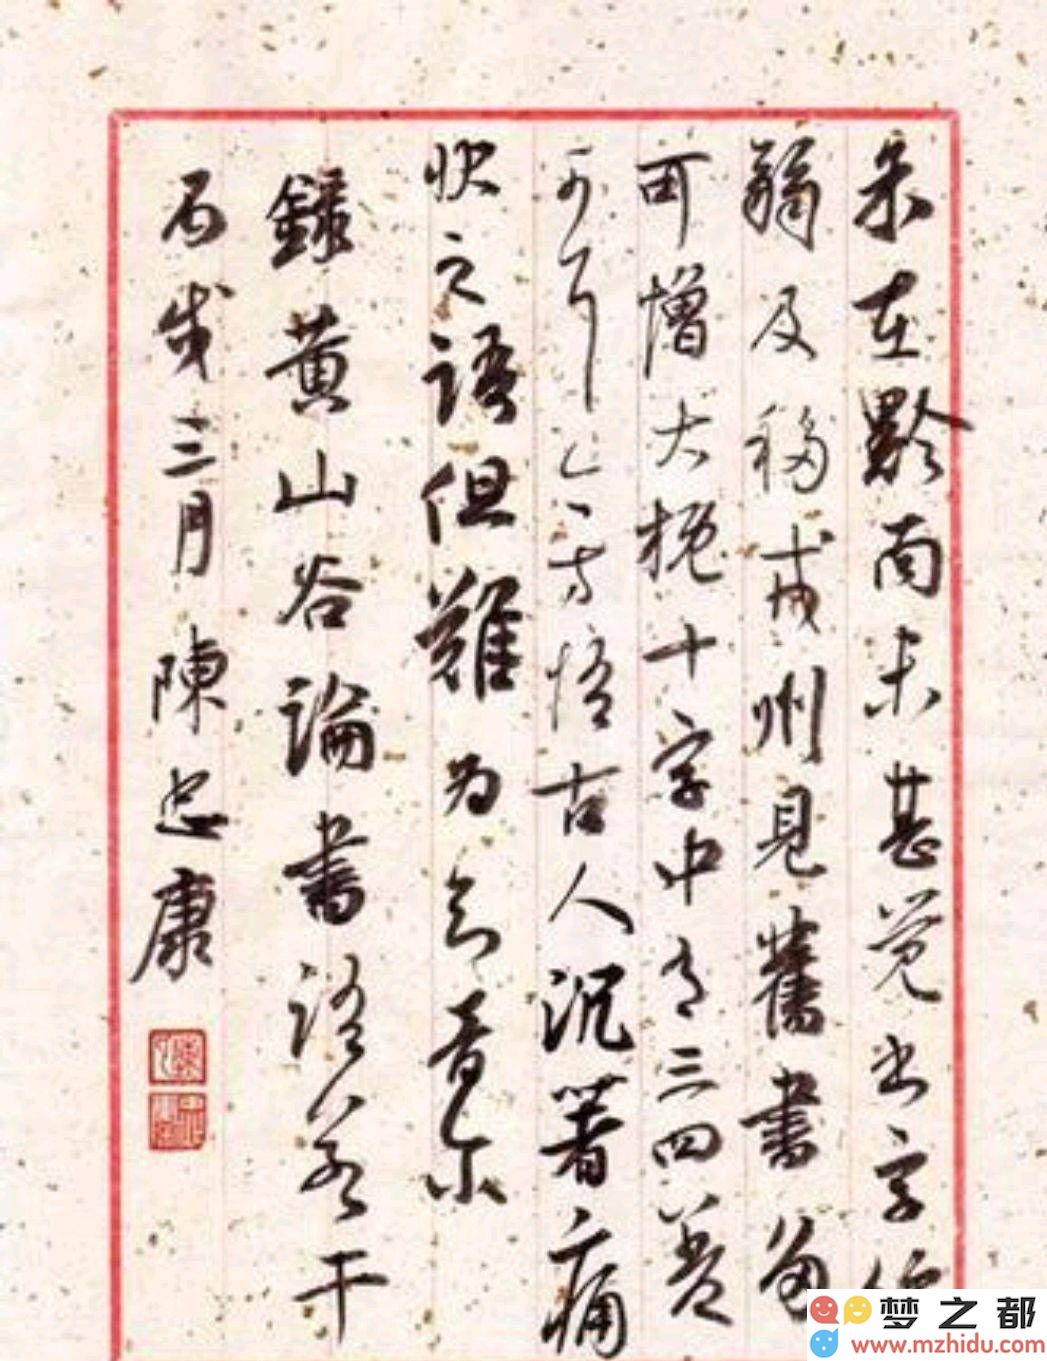 余在黔南未甚觉书字绵
弱及移戎州見舊書多
可憎大概十字中有三四差
可耳今方悟古人沉著痛
快之語但難為知音尔
錄黄山谷論書語若干
丙戌三月陳忠康
梦之都
www.mzhidu.com